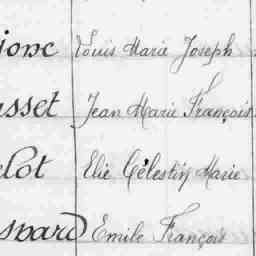 jonc Louis Marie Joseph
usset Jean Marie François
elot Elie Célestin Marie
Emile François